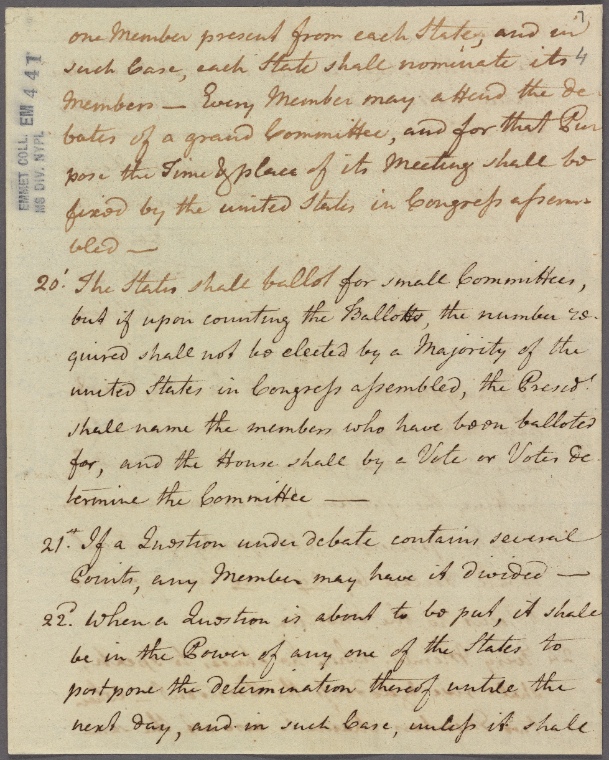 7
one Member present from each State, and in
4
such Case, each State shall nominate its
Members — Every Member may attend the de
bates of a grand Committee, and for that Pur
pose the Time & place of its Meeting shall be
fixed by the united States in Congress assem-
bled —
20. The States shall ballot for small Committees,
but if upon counting the Ballotts, the number re-
quired shall not be elected by a Majority of the
united States in Congress assembled, the Presidt
shall name the members who have been balloted
for, and the House shall by a Vote or Votes de
termine the Committee —
21st. If a Question under debate contains several
Points, any Member may have it divided —
22d. When a Question is about to be put, it shall
be in the Power of any one of the States to
postpone the determination thereof untile the
next day, and in such Case, unless it shall
EMMET COLL. EM 441
MS DIV. NYPL